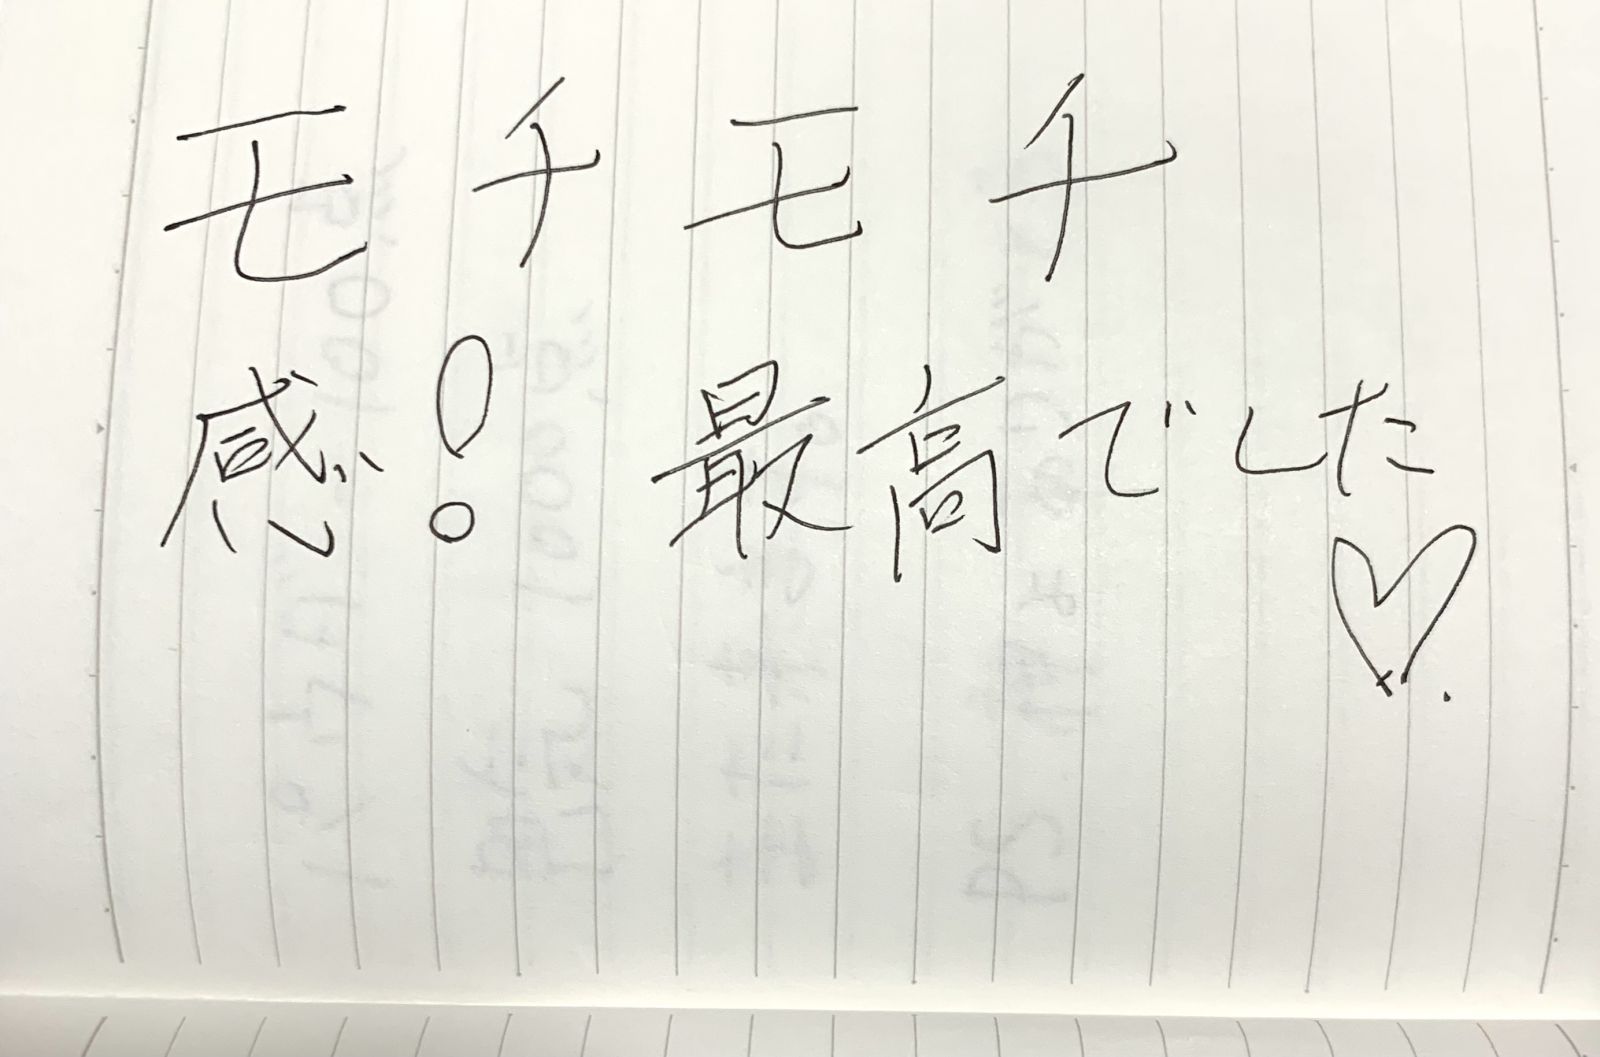 モチモチ
感! 最高でした
♡